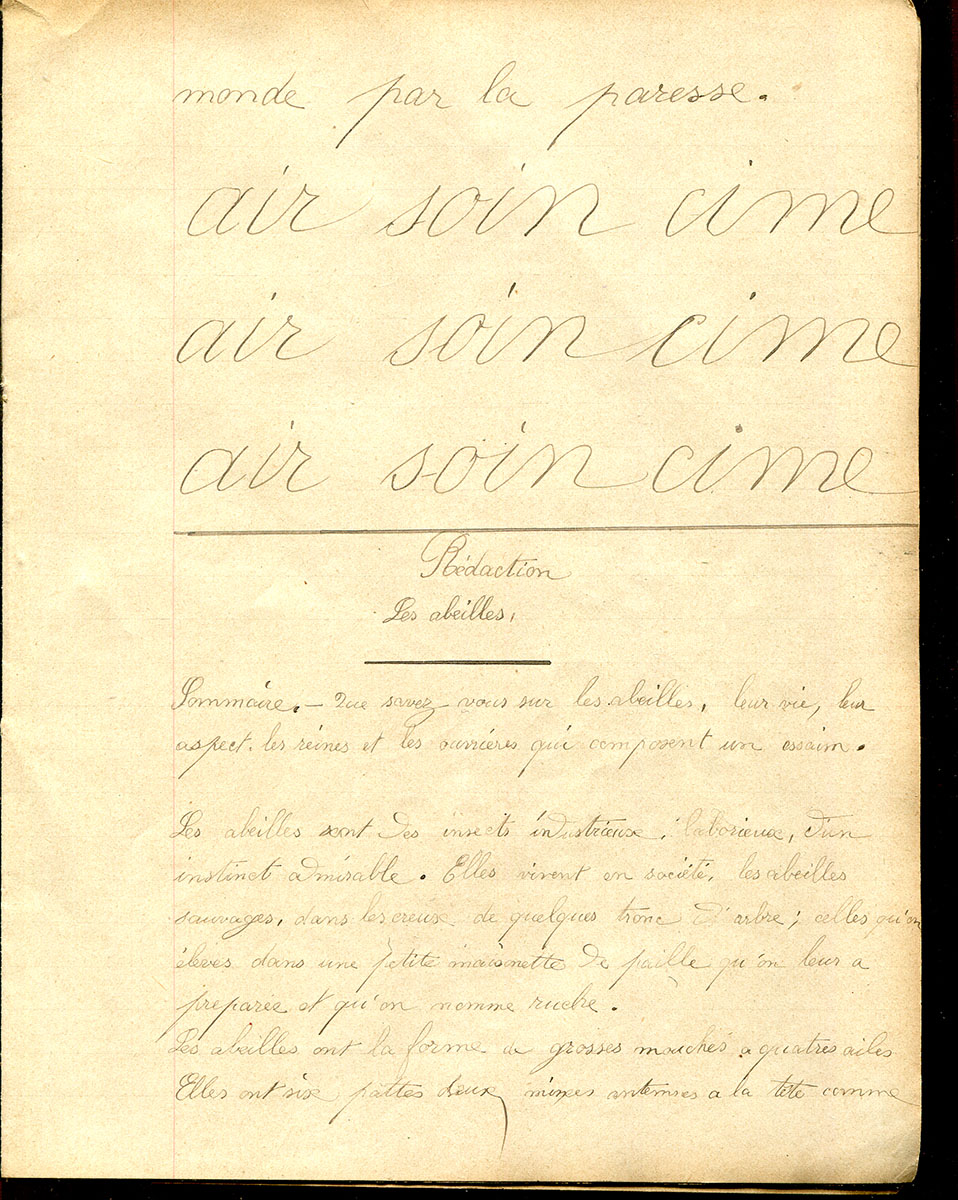 monde par la paresse.
air soin cime
air soin cime
air soin cime
Rédaction
Les abeilles.
Sommaire. – Que savez-vous sur les abeilles, leur vie, leur
aspect. les reines et les ouvrières qui composent un essaim.
Les abeilles sont des insects industrieux, laborieux, d'un
instinct admirable. Elles vivent en société, les abeilles
sauvages, dans les creux de quelques tronc d'arbre; celles qu'on
élèves dans une petite maisonette de paille qu'on leur a
preparée et qu'on nomme ruche.
Les abeilles ont la forme de grosses mouches a quatres ailes
Elles ont six pattes deux antennes a la tête comme